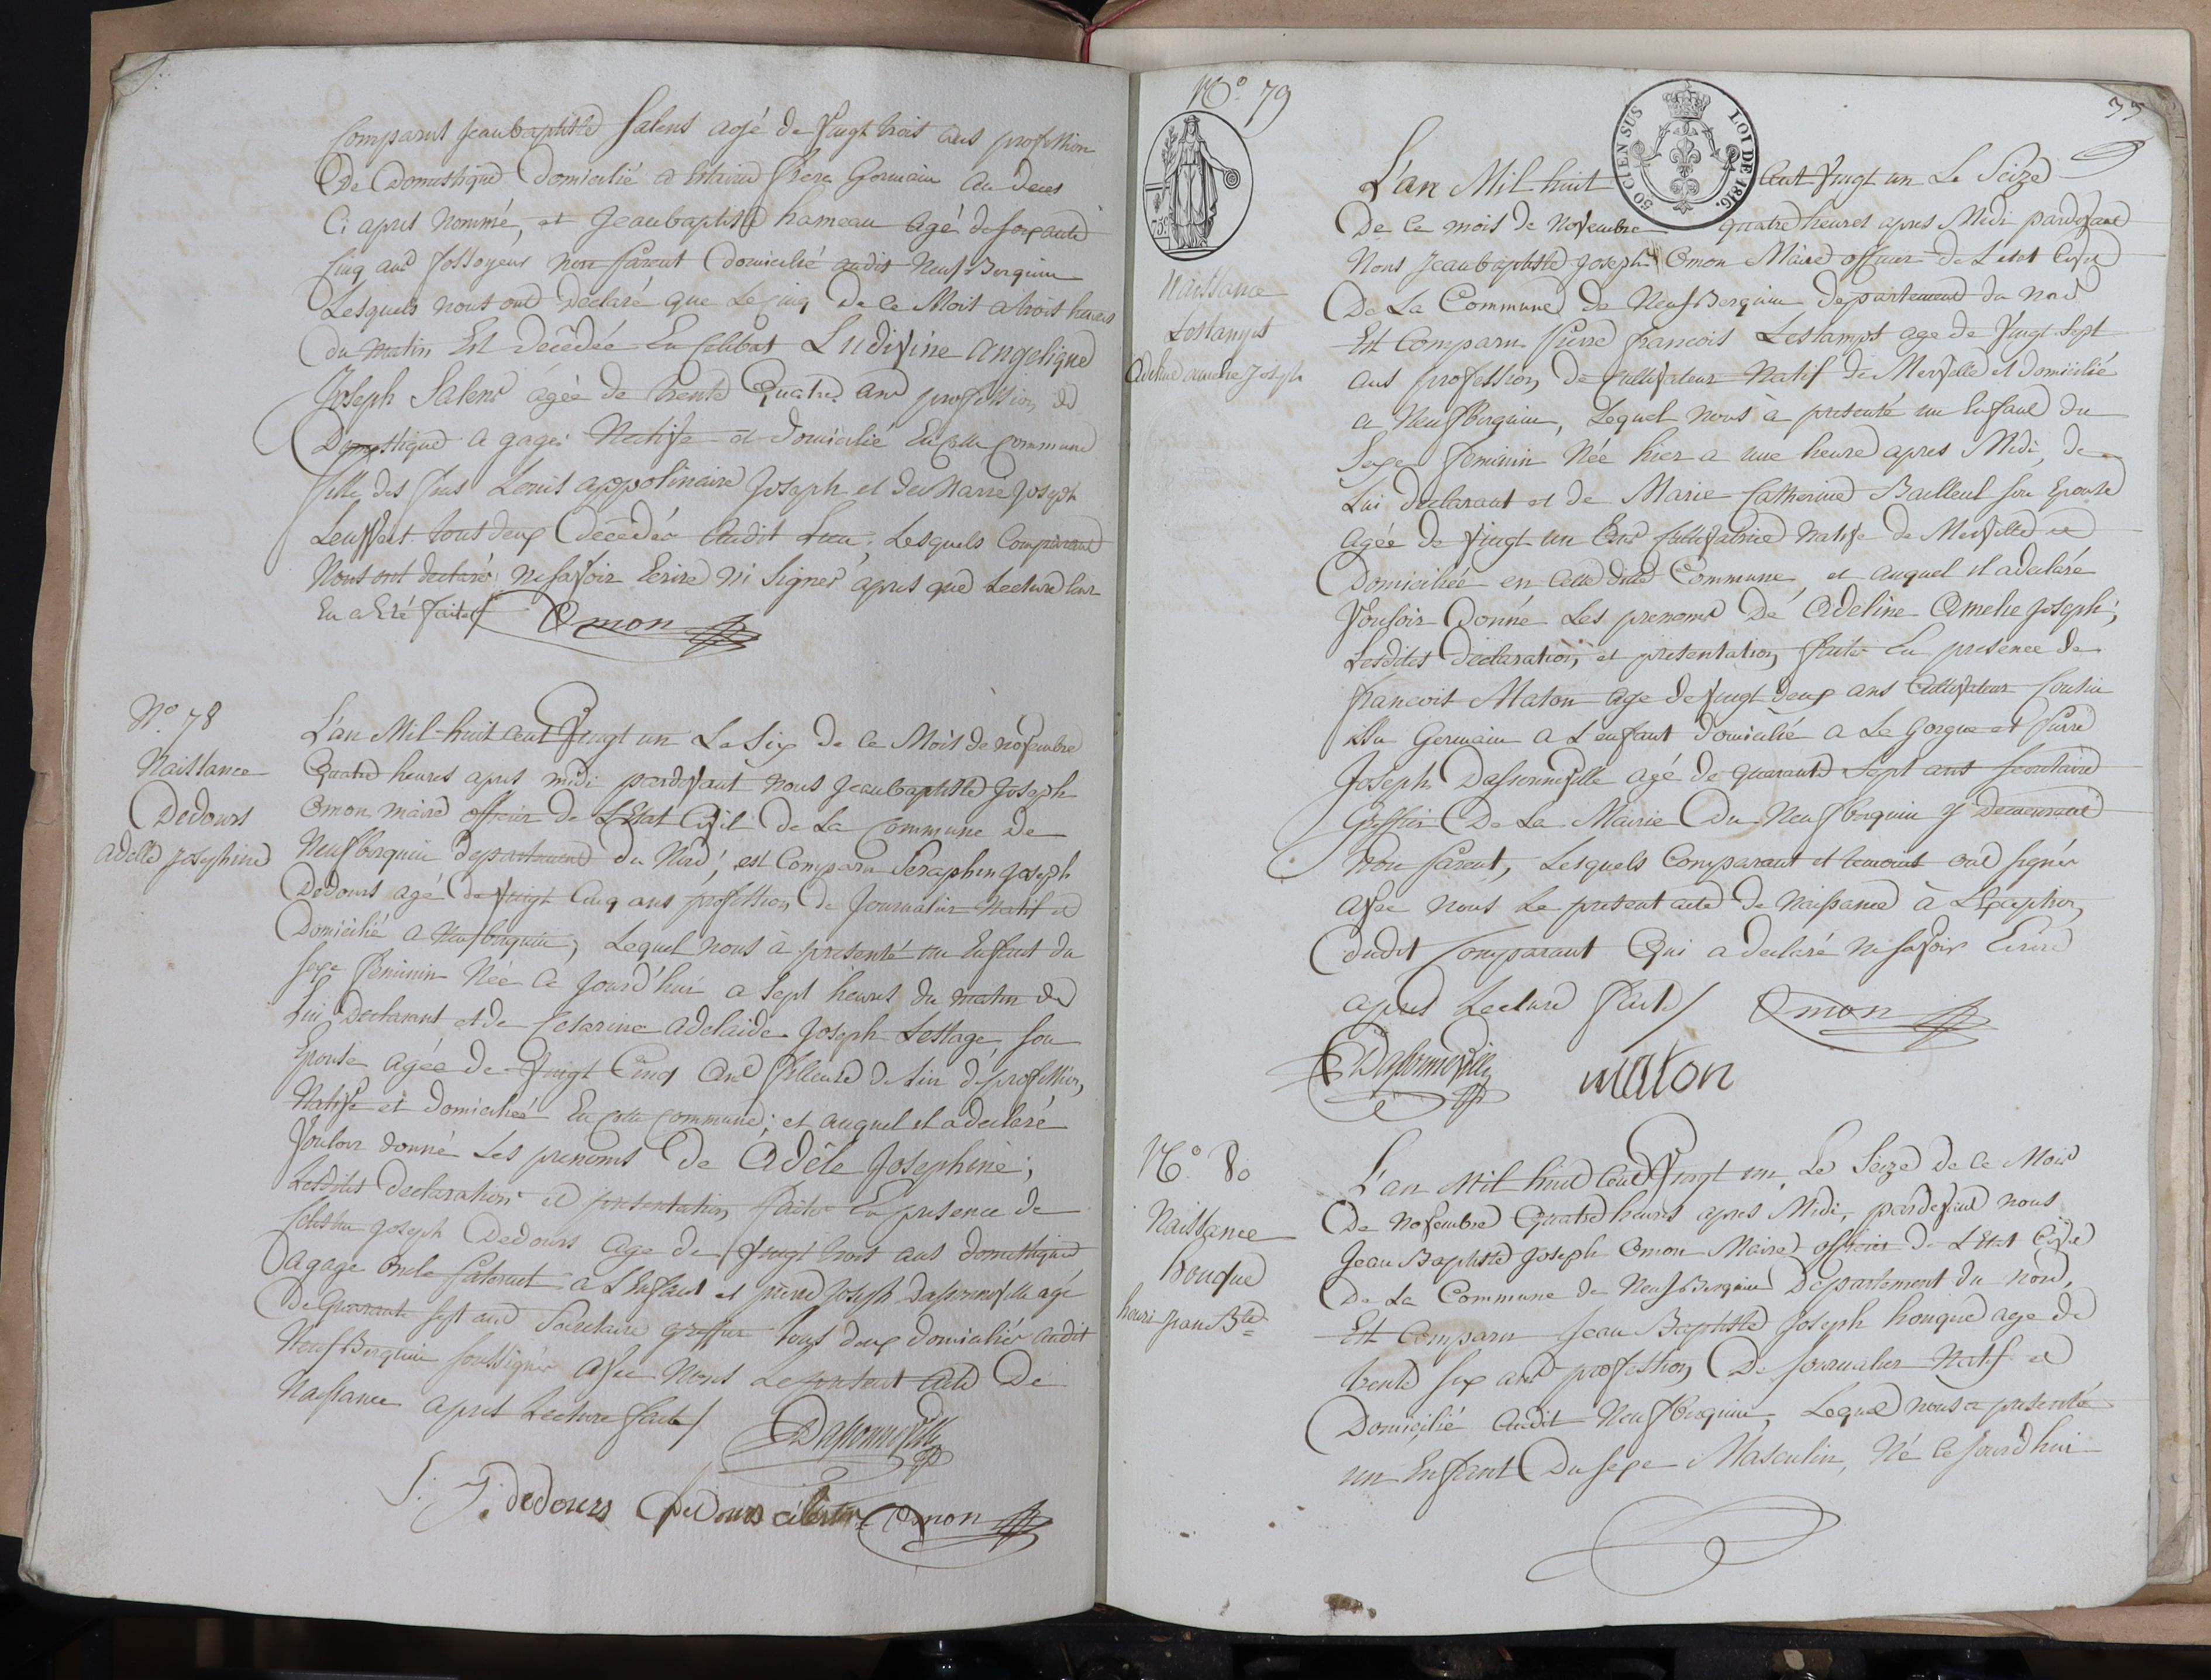 Comparus Jeanbaptiste Salens agé de Vingt trois ans profession
De Domestique Domicilié a Estaires frere Germain au deces
Ci apres Nommé, et Jeanbaptiste hameau agé de soixante
Cinq ans fossoyeur non parent Domicilié audit Neuf Berquin
Lesquels nous ont Declaré que Le cinq De ce Mois a trois heures
Du matin Est Décédée En Celibat Ludivine Angelique
Joseph Salens agée de trente Quatre ans profession de
Domestique a gages Native et domicilié En cette commune
fille des feus Louis appolinaire Joseph et de Marie Joseph
tout deux Décédés audit Lieu, Lesquels Comparans
Nous ont declaré ne savoir Ecrire Ni Signer apres que Lecture leur
En a Eté faite / Omon
N° 78
Naissance
Dedours
Adelle Josephine
L'an Mil-huit cent Vingt un Le Six de ce Mois de novembre
Quatre heures apres midi pardevant nous Jeanbaptiste Joseph
Omon maire officier de L'Etat Civil de La Commune de
Neufberquin departement du Nord, est Comparu Seraphin Joseph
Dedours agé de vingt Cinq ans profession De Journalier Natif et
Domicilié a Neufberquin, Lequel nous à presenté un Enfant du
sexe feminin Née Ce Jourd'hui a Sept heures du matin de
Lui Declarant et de Cesarine Adelaide Joseph Lestage, son
Epouse agée de Vingt Cinq ans fileuse de lin de profession,
Native et domiciliée En cette commune; et auquel il a declaré
Vouloir donné Les prenoms De Adèle Josephine;
Lesdites declaration et presentation faite En presence de
Celestin Joseph Dedours age de Vingt trois ans domestique
a gage oncle paternel a L'Enfant et pierre Joseph Dassonneville agé
De Quarante sept ans Secretaire greffier tous deux domiciliés audit
Neuf Berquin soussignés avec Nous Le present acte De
Naissance apres Lecture faite / Dassonneville
S. J. dedours Dedours célestin Omon
N° 79
37
SO CIENSUS
LOI DE 1816.
75c
Naissance
Lestamps
Adeline amelie Joseph
L'an Mil huit cent Vingt un Le Seize
De ce mois de Novembre quatre heures apres Midi pardevant
Nous Jeanbaptiste Joseph Omon Maire officier de L'etat Civil
De La Commune de Neuf Berquin departement du Nord
Est Comparu Pierre francois Lestamps age de Vingt Sept
ans profession de Cultivateur Natif de Merville et domicilié
a Neufberquin, Lequel nous à presenté un Enfant du
Sexe feminin Née hier a une heure apres Midi, de
Lui declarant et de Marie Catherine Bailleul son Epouse
Agée de Vingt un ans Cultivatrice Native de Merville et
Domiciliée en Cette dite Commune, et auquel il a declaré
Vouloir Donné Les prenoms De Adeline Amelie Joseph;
Lesdites Declaration, et presentation, faite En presence de
francois Maton age de Vingt deux ans Cultivateur Cousin
issu Germain a L'enfant domicilié a La Gorgue et Pierre
Joseph Dassonneville agé de quarante Sept ans Secretaire
Greffier De La Mairie Du Neufberquin y demeurant
Non parent, Lesquels Comparant et temoins ont signés
avec nous Le present acte De Naissance à L'Exception,
dudit Comparant Qui a declaré ne savoir Ecrire
apres Lecture faite / Omon
Dassonneville maton
N° 80
Naissance
houque
henri Jean Bte
L'an Mil huit Cent Vingt un, Le Seize de ce Mois
De Novembre Quatre heures apres Midi, pardevant nous
Jean Baptiste Joseph Omon Maire officier de L'Etat Civil
De La Commune de Neuf Berquin Departement du Nord,
Est Comparu Jean Baptiste Joseph houque age de
trente six ans profession De Journalier Natif et
Domicilié audit Neufberquin, Lequel nous a presenté
un Enfant Du sexe Masculin, Né Ce Jourd'hui